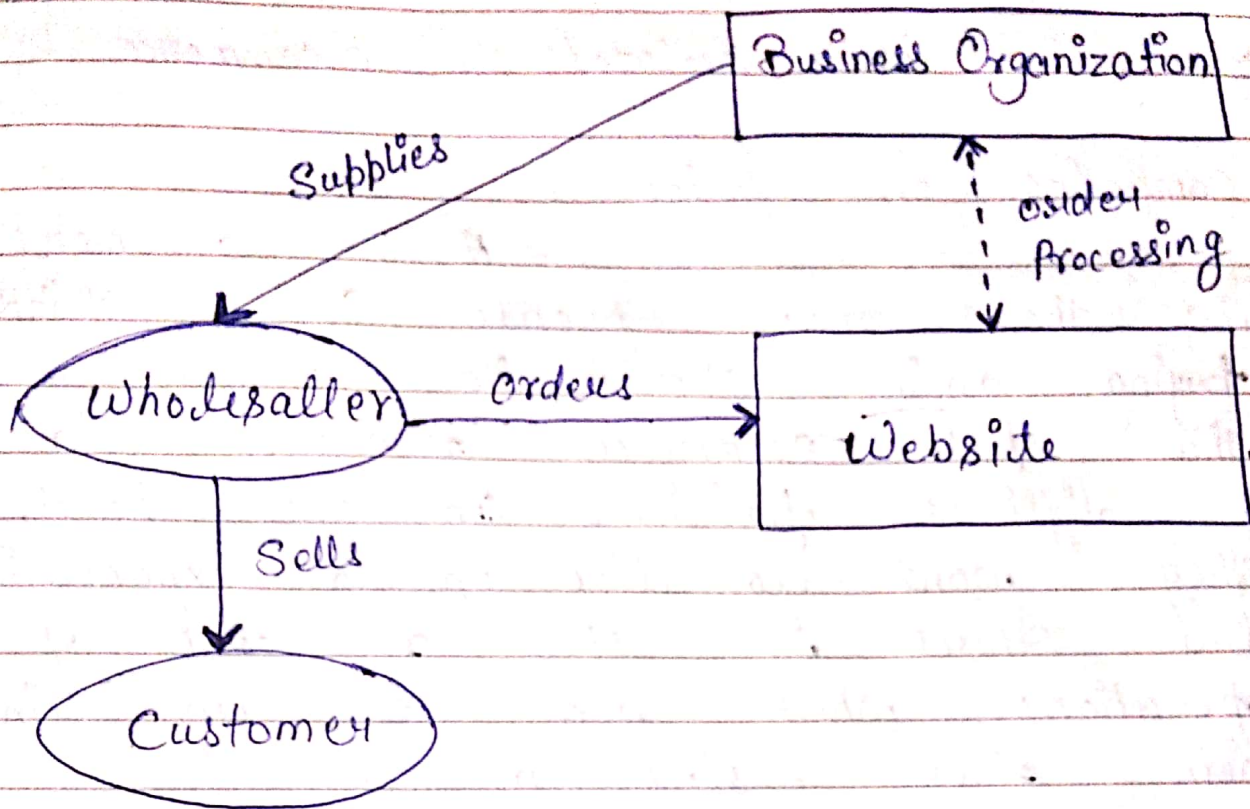 Business Organization
Supplies
order
Processing
Wholesaller
Orders
Website
Sells
Customer